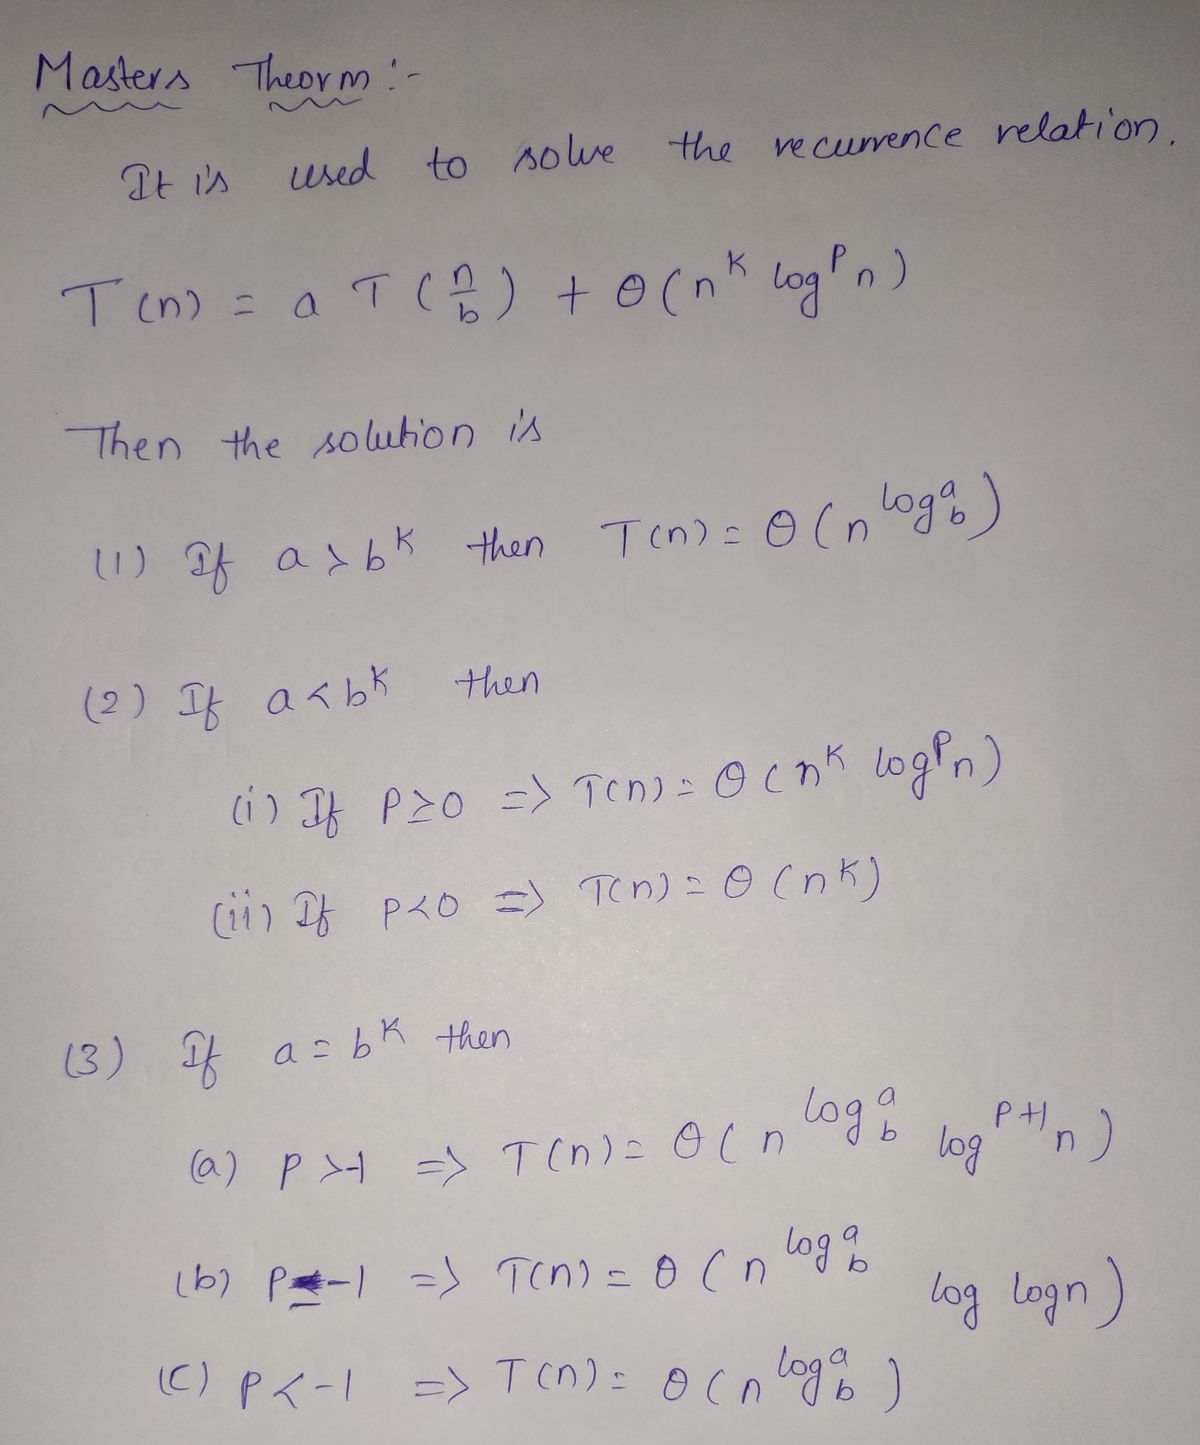 Masters Theorm :-
It is used to solve the recurrence relation.
T(n) = a T(n/b) + θ(n^k log^p n)
Then the solution is
(1) If a > b^k then T(n) = θ(n^log_b^a)
(2) If a < b^k then
(i) If P ≥ 0 => T(n) = θ(n^k log^p n)
(ii) If P < 0 => T(n) = θ(n^k)
(3) If a = b^k then
(a) P > -1 => T(n) = θ(n^log_b^a log^P+1 n)
(b) P = -1 => T(n) = θ(n^log_b^a log logn)
(c) P < -1 => T(n) = θ(n^log_b^a)